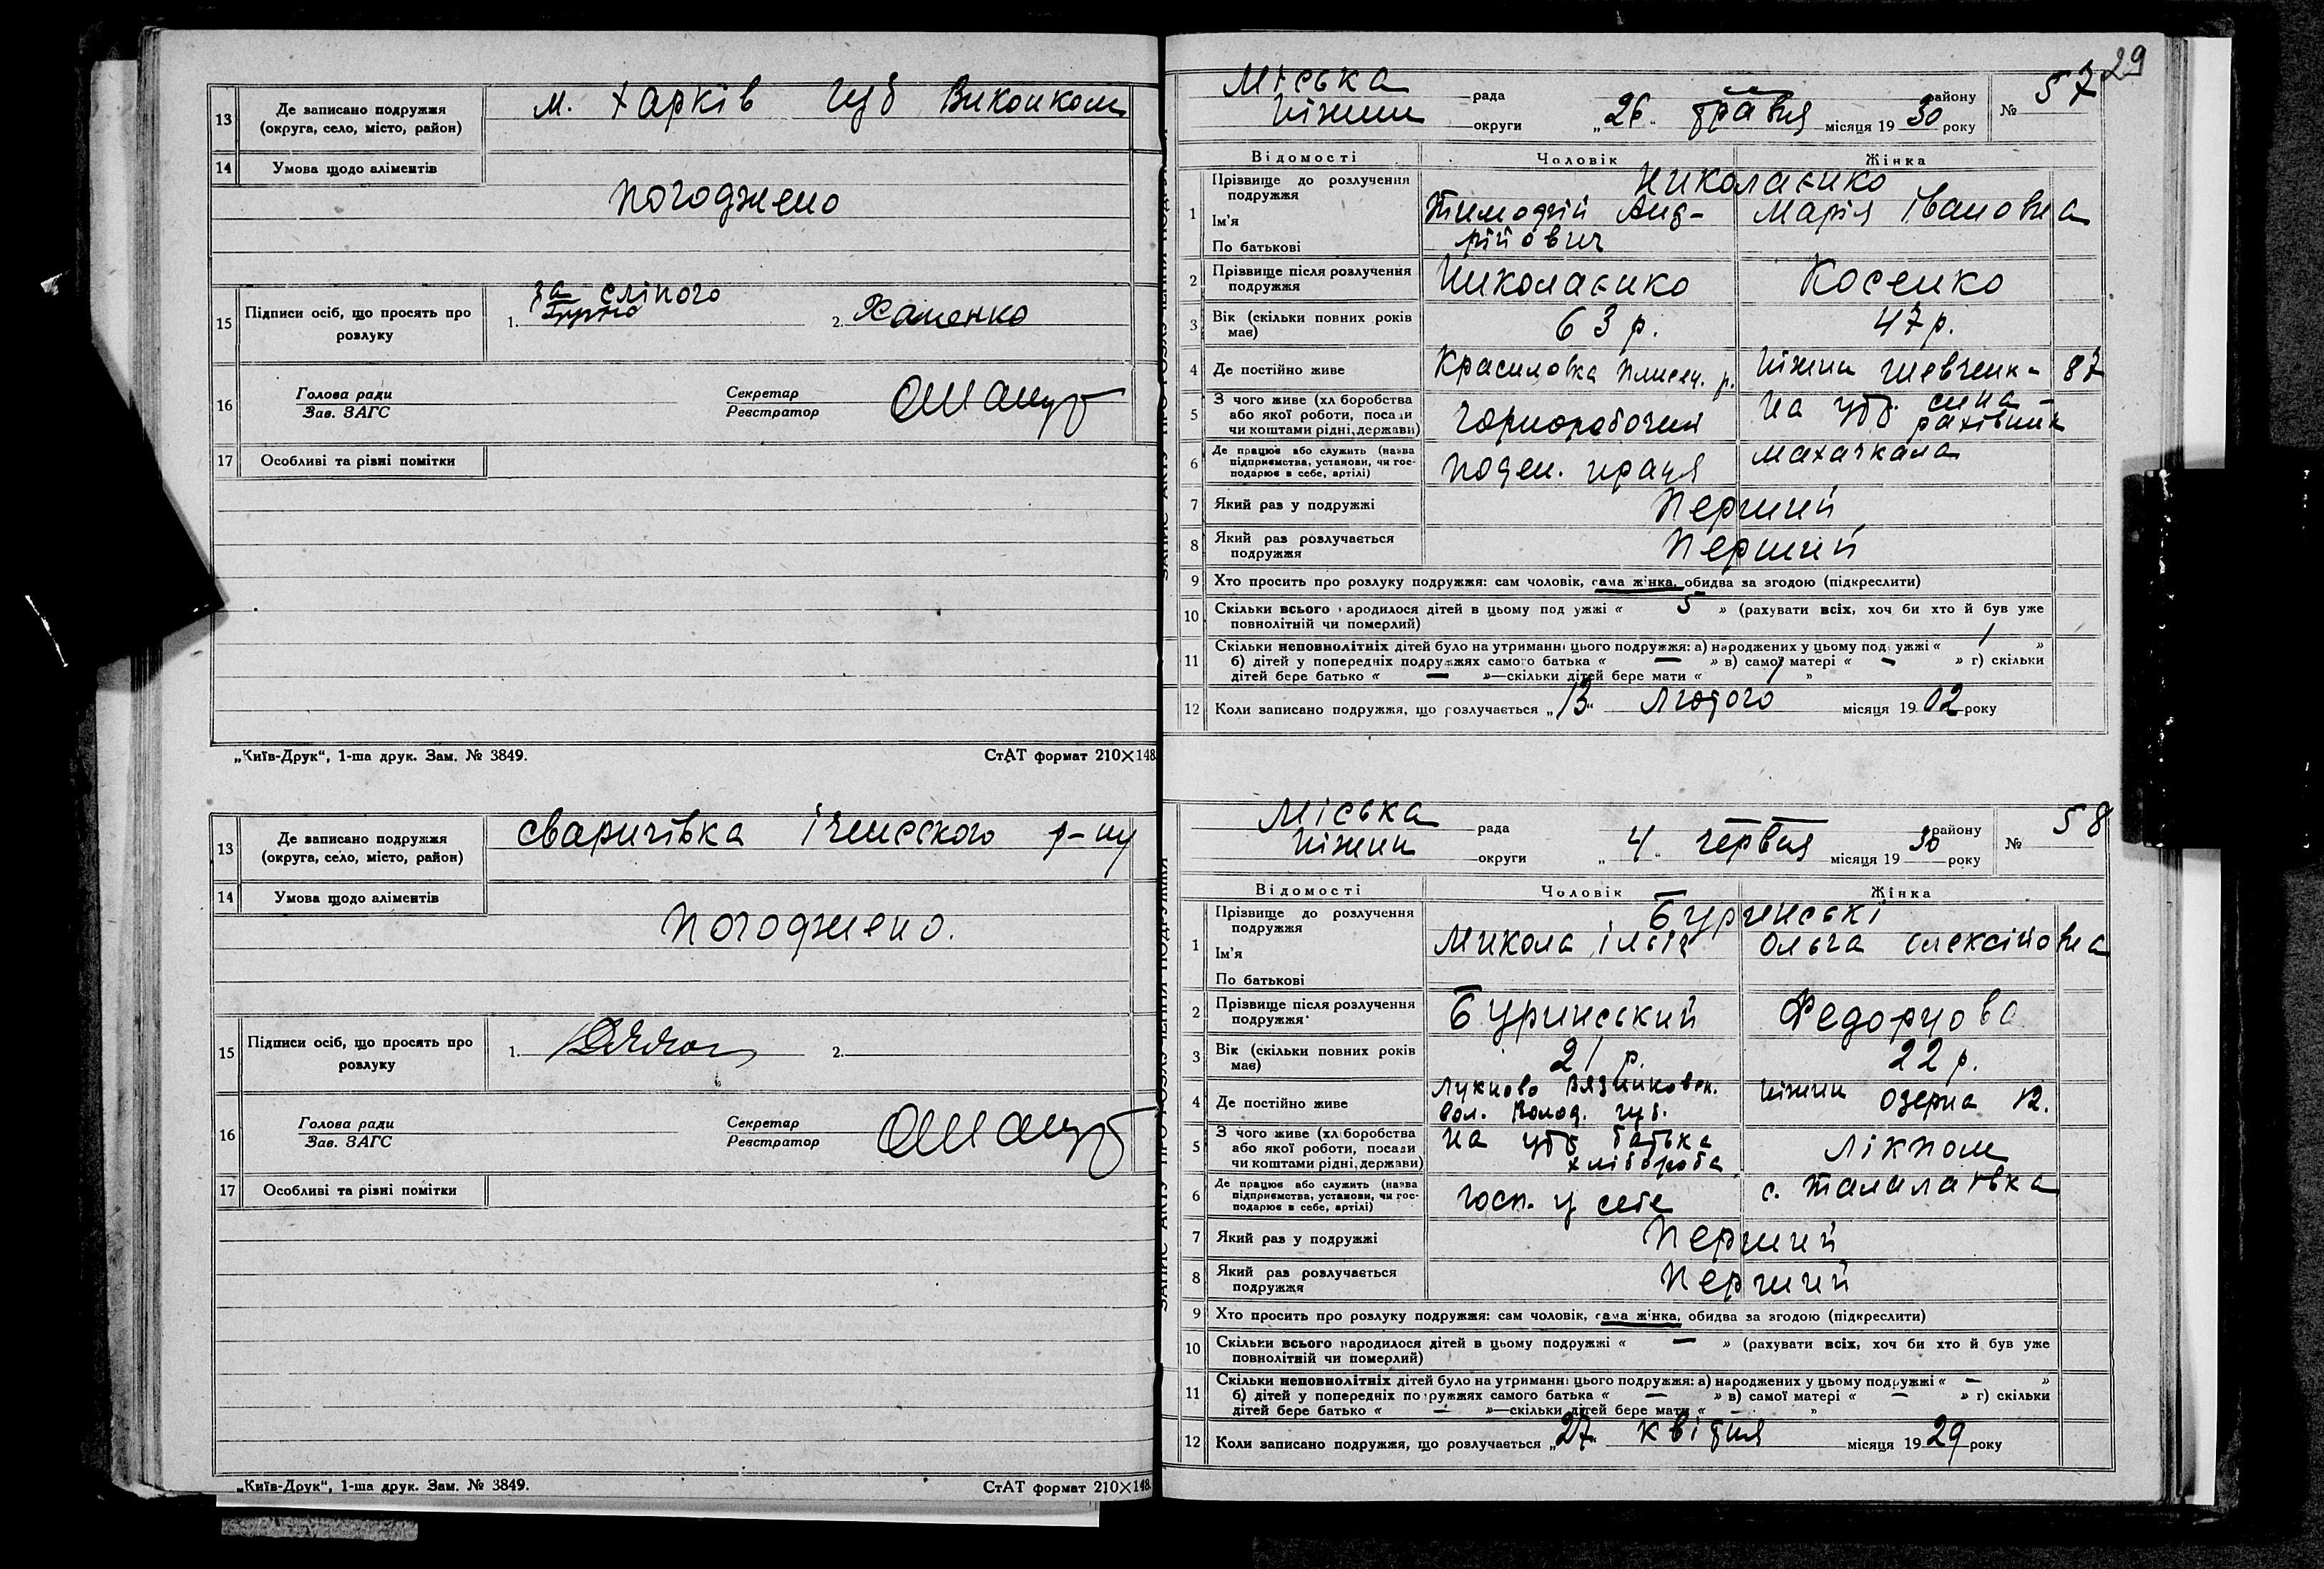 13 Де записано подружжя м. Харків Губ Виконком
(округа, село, місто, район)
14 Умова щодо аліментів
погоджено
за сліпого
15 Підписи осіб, що просять про 1. 2. Хаменко
розлуку
Голова ради Секретар
16 Зав. ЗАГС Реєстратор
17 Особливі та різні помітки
„Київ-Друк“, 1-ша друк. Зам. № 3849. СтАТ формат 210×148.
13 Де записано подружжя Сваричівка Ічнєского р-ну
(округа, село, місто, район)
14 Умова щодо аліментів
погоджено.
15 Підписи осіб, що просять про 1. 2.
розлуку
Голова ради Секретар
16 Зав. ЗАГС Реєстратор
17 Особливі та різні помітки
„Київ-Друк“, 1-ша друк. Зам. № 3849. СтАТ формат 210×148.
29
Міська рада району № 57
Ніжин округи „26“ травня місяця 1930 року
Відомості Чоловік Жінка
1 Прізвище до розлучення Николаєнко
подружжя
Ім'я Тимофій Анд- Марія Івановна
По батькові рійович
2 Прізвище після розлучення Николаєнко Косенко
подружжя
3 Вік (скільки повних років 63 р. 47 р.
має)
4 Де постійно живе Красиловка Плиск. р. Ніжин Шевченка 87
5 З чого живе (хліборобства На утр. сина -
або якої роботи, посади чорноробочий рахівник
чи коштами рідні, держави)
6 Де працює або служить (назва Махачкала
підприємства, установи, чи гос- поден. праця
подарює в себе, артілі)
7 Який раз у подружжі Перший
8 Який раз розлучається Перший
подружжя
9 Хто просить про розлуку подружжя: сам чоловік, сама жінка, обидва за згодою (підкреслити)
10 Скільки всього народилося дітей в цьому подружжі « 5 » (рахувати всіх, хоч би хто й був уже
повнолітній чи померлий)
11 Скільки неповнолітніх дітей було на утриманні цього подружжя: а) народжених у цьому подружжі « 1 »
б) дітей у попередніх подружжях самого батька « — » в) самої матері « - » г) скільки
дітей бере батько « — »—скільки дітей бере мати « 1 »
12 Коли записано подружжя, що розлучається „13“ Лютого місяця 1902 року
Міська рада району № 58
Ніжин округи „4“ червня місяця 1930 року
Відомості Чоловік Жінка
1 Прізвище до розлучення Буринські
подружжя
Ім'я Микола Ільіч Ольга Олексійовна
По батькові
2 Прізвище після розлучення Буринський Федорцова
подружжя
3 Вік (скільки повних років 21 р. 22 р.
має)
4 Де постійно живе Лукново Вязниковск. Ніжин Озерна 12.
вол. Волод. губ.
5 З чого живе (хліборобства на утр батька Лікпом
або якої роботи, посади хлібороба
чи коштами рідні, держави)
6 Де працює або служить (назва с. Талалаївка
підприємства, установи, чи гос- госп. у себе
подарює в себе, артілі)
7 Який раз у подружжі Перший
8 Який раз розлучається Перший
подружжя
9 Хто просить про розлуку подружжя: сам чоловік, сама жінка, обидва за згодою (підкреслити)
10 Скільки всього народилося дітей в цьому подружжі « — » (рахувати всіх, хоч би хто й був уже
повнолітній чи померлий)
11 Скільки неповнолітніх дітей було на утриманні цього подружжя: а) народжених у цьому подружжі « — »
б) дітей у попередніх подружжях самого батька « — » в) самої матері « — » г) скільки
дітей бере батько « — »—скільки дітей бере мати « — »
12 Коли записано подружжя, що розлучається „27“ квітня місяця 1929 року